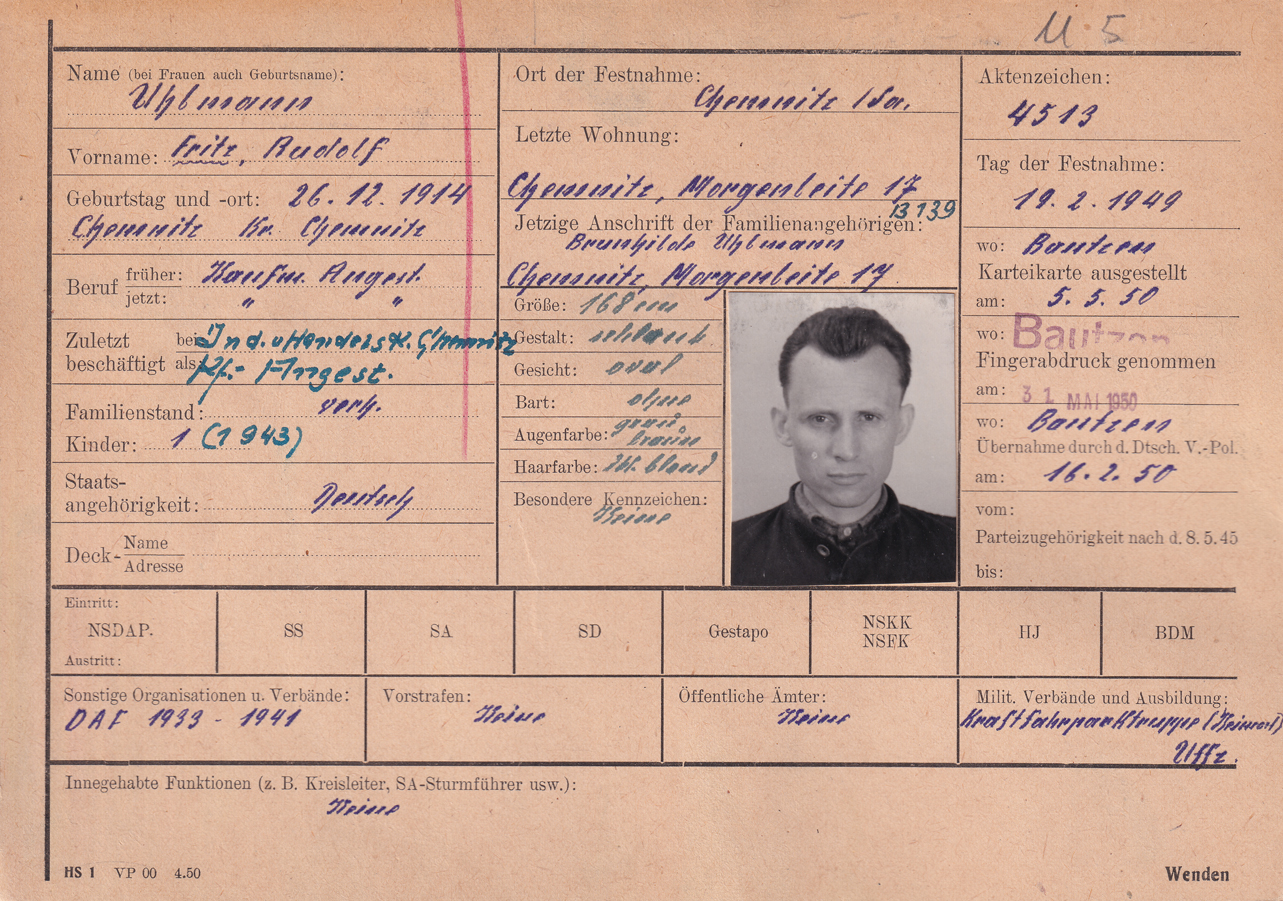 U 5
Name (bei Frauen auch Geburtsname):
Uhlmann
Vorname: Fritz, Rudolf
Geburtstag und -ort: 26. 12. 1914
Chemnitz Kr. Chemnitz
Beruf früher: Kaufm. Angest.
jetzt: " "
Zuletzt beschäftigt bei Ind. u Handelsk. Chemnitz
als Kf.- Angest.
Familienstand: verh.
Kinder: 1 (1943)
Staats-
angehörigkeit: Deutsch
Deck- Name
Adresse
Ort der Festnahme:
Chemnitz /Sa.
Letzte Wohnung:
Chemnitz, Morgenleite 17
13139
Jetzige Anschrift der Familienangehörigen:
Brunhilde Uhlmann
Chemnitz, Morgenleite 17
Größe: 168 cm
Gestalt: schlank
Gesicht: oval
Bart: ohne
Augenfarbe: grau braun
Haarfarbe: blond
Besondere Kennzeichen:
Keine
Aktenzeichen:
4513
Tag der Festnahme:
19. 2. 1949
wo: Bautzen
Karteikarte ausgestellt
am: 5. 5. 50
wo: Bautzen
Fingerabdruck genommen
am: 31 MAI 1950
wo: Bautzen
Übernahme durch d. Dtsch. V.-Pol.
am: 16. 2. 50
vom:
Parteizugehörigkeit nach d. 8. 5. 45
bis:
Eintritt:
NSDAP. SS SA SD Gestapo NSKK NSFK HJ BDM
Austritt:
Sonstige Organisationen u. Verbände:
DAF 1933 - 1941
Vorstrafen:
Keine
Öffentliche Ämter:
Keine
Milit. Verbände und Ausbildung:
Kraftfahrparktruppe
Uffz.
Innegehabte Funktionen (z. B. Kreisleiter, SA-Sturmführer usw.):
Keine
HS 1 VP 00 4.50
Wenden